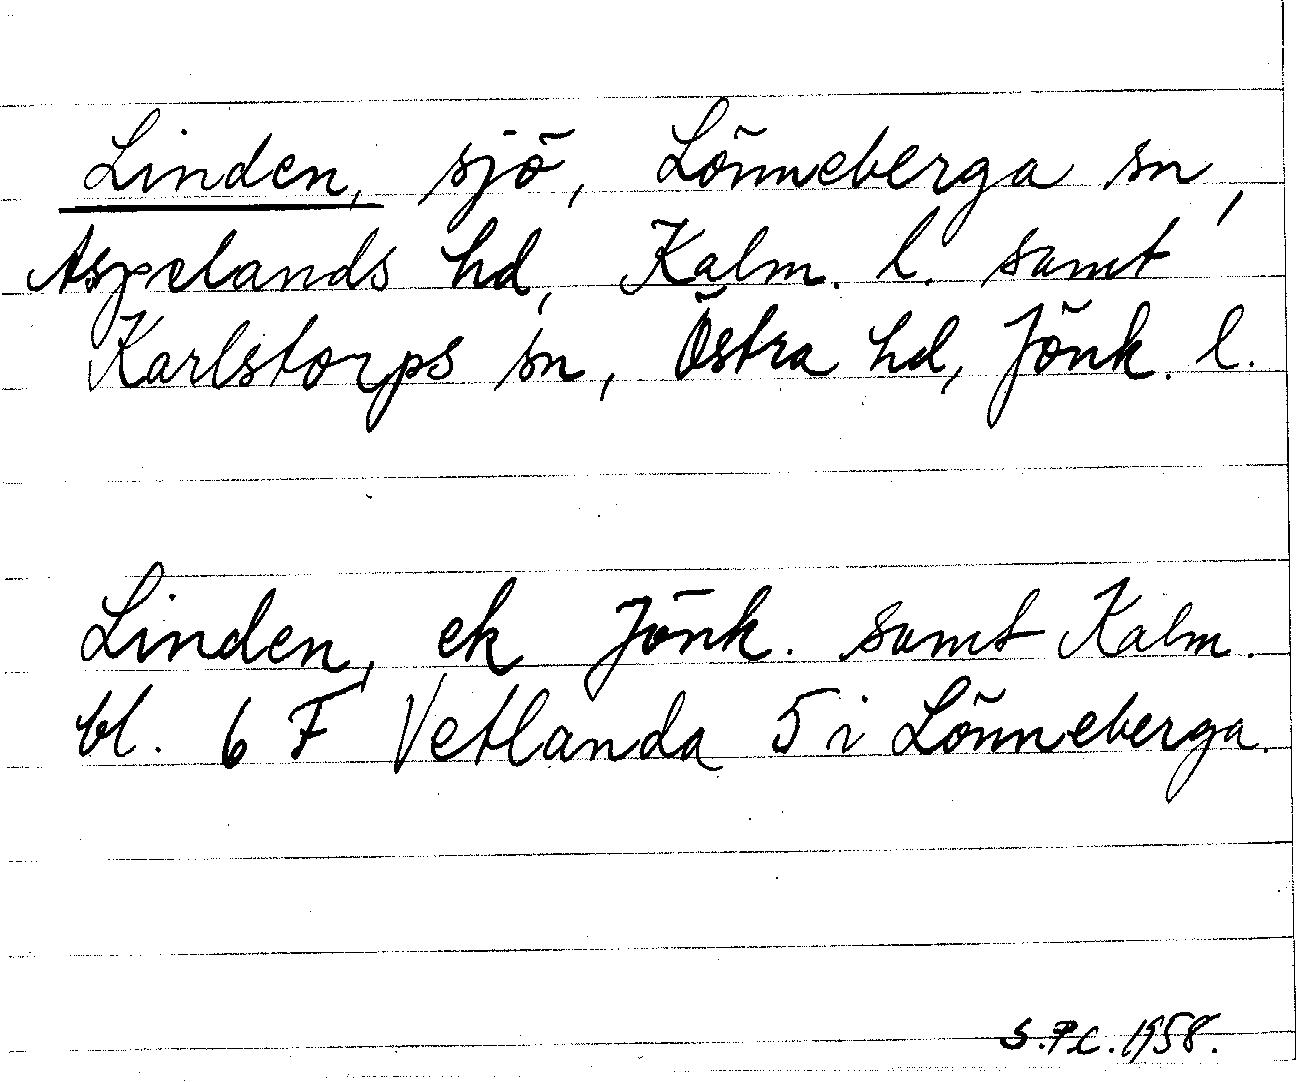 Linden, sjö, Lönneberga sn,
Aspelands hd, Kalm. l. samt
Karlstorps sn, Östra hd, Jönk. l.
Linden, ek Jönk. samt Kalm.
bl. 6 F Vetlanda 5 i Lönneberga.
S.P.C. 1958.